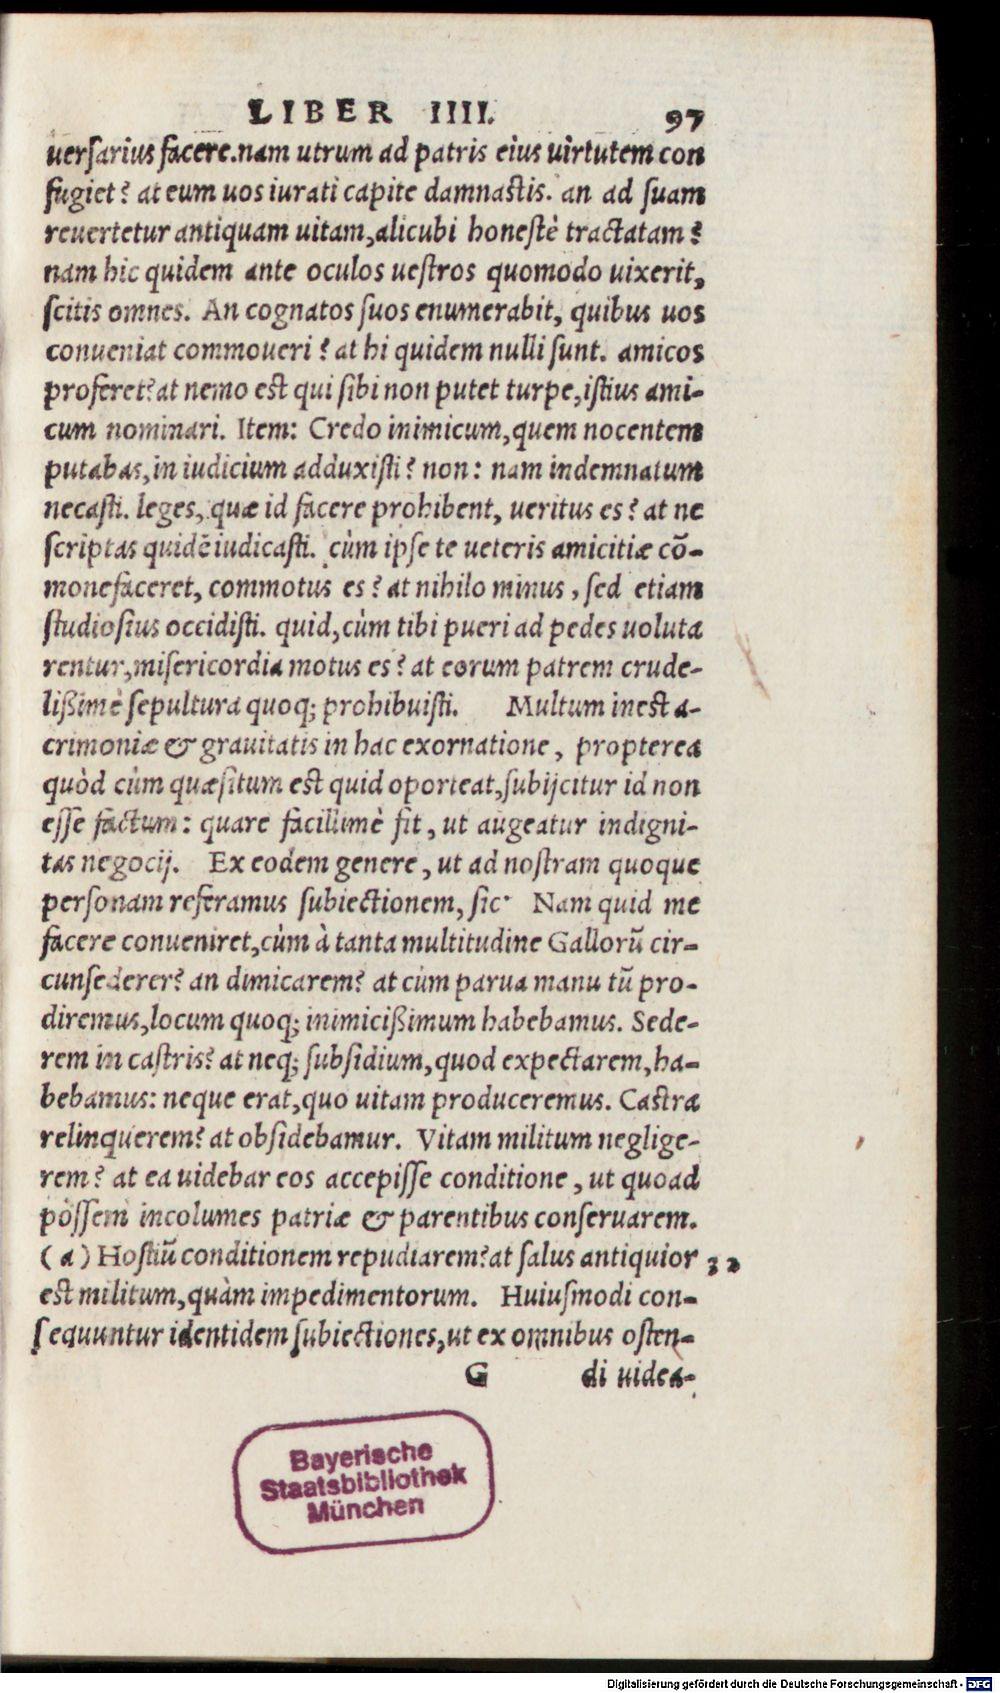 LIBER IIII. 97
uersarius facere. nam utrum ad patris eius uirtutem con
fugiet? at eum uos iurati capite damnastis. an ad suam
reuertetur antiquam uitam, alicubi honestè tractatam?
nam hic quidem ante oculos uestros quomodo uixerit,
scitis omnes. An cognatos suos enumerabit, quibus uos
conueniat commoueri? at hi quidem nulli sunt. amicos
proferet? at nemo est qui sibi non putet turpe, istius ami-
cum nominari. Item: Credo inimicum, quem nocentem
putabas, in iudicium adduxisti? non: nam indemnatum
necasti. leges, quæ id facere prohibent, ueritus es? at ne
scriptas quidē iudicasti. cùm ipse te ueteris amicitiæ cō-
monefaceret, commotus es? at nihilo minus, sed etiam
studiosius occidisti. quid, cùm tibi pueri ad pedes uoluta
rentur, misericordia motus es? at eorum patrem crude-
lißimè sepultura quoq; prohibuisti. Multum inest a-
crimoniæ & grauitatis in hac exornatione, propterea
quòd cùm quæsitum est quid oporteat, subijcitur id non
esse factum: quare facillimè fit, ut augeatur indigni-
tas negocij. Ex eodem genere, ut ad nostram quoque
personam referamus subiectionem, sic· Nam quid me
facere conueniret, cùm à tanta multitudine Gallorū cir-
cunsederer? an dimicarem? at cùm parua manu tū pro-
diremus, locum quoq; inimicißimum habebamus. Sede-
rem in castris? at neq; subsidium, quod expectarem, ha-
bebamus: neque erat, quo uitam produceremus. Castra
relinquerem? at obsidebamur. Vitam militum neglige-
rem? at ea uidebar eos accepisse conditione, ut quoad
possem incolumes patriæ & parentibus conseruarem.
(a) Hostiū conditionem repudiarem? at salus antiquior 32
est militum, quàm impedimentorum. Huiusmodi con-
sequuntur identidem subiectiones, ut ex omnibus osten-
G di uidea-
Bayerische
Staatsbibliothek
München
Digitalisierung gefördert durch die Deutsche Forschungsgemeinschaft - DFG